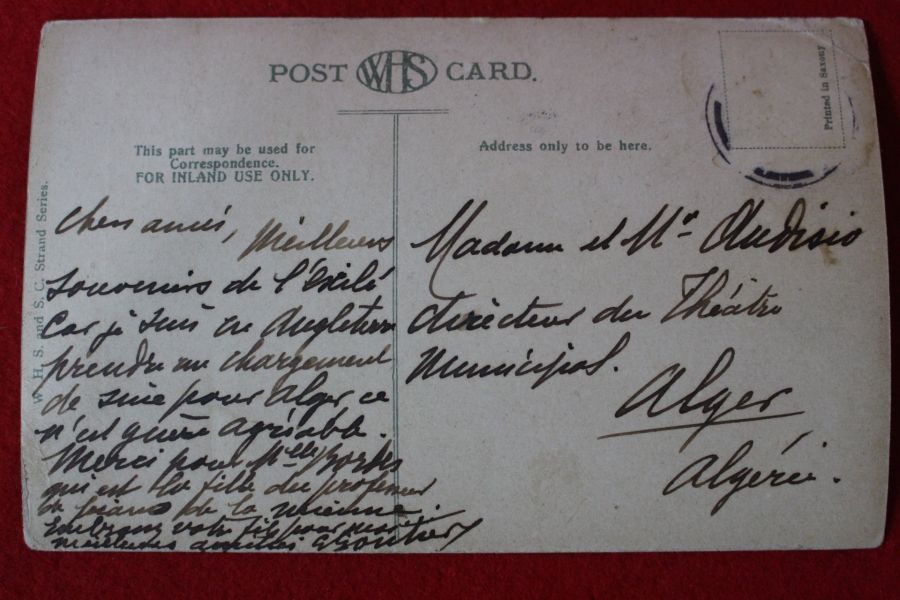 POST WHS CARD.
Printed in Saxony
This part may be used for
Correspondence.
FOR INLAND USE ONLY.
Address only to be here.
W. H. S. and S. C. Strand Series.
Chers amis, Meilleurs
Souvenirs de l'Exilé
Car je suis en Angleterre
prendre un chargement
de pour Alger ce
n'est guère agréable.
Merci pour Mlle Bordes
qui est la fille du professeur
de piano de la mienne.
Embrassez votre fils pour moi
meilleures amitiés
Madame et Mr Audisio
directeur du Théâtre
Municipal.
Alger
Algérie.